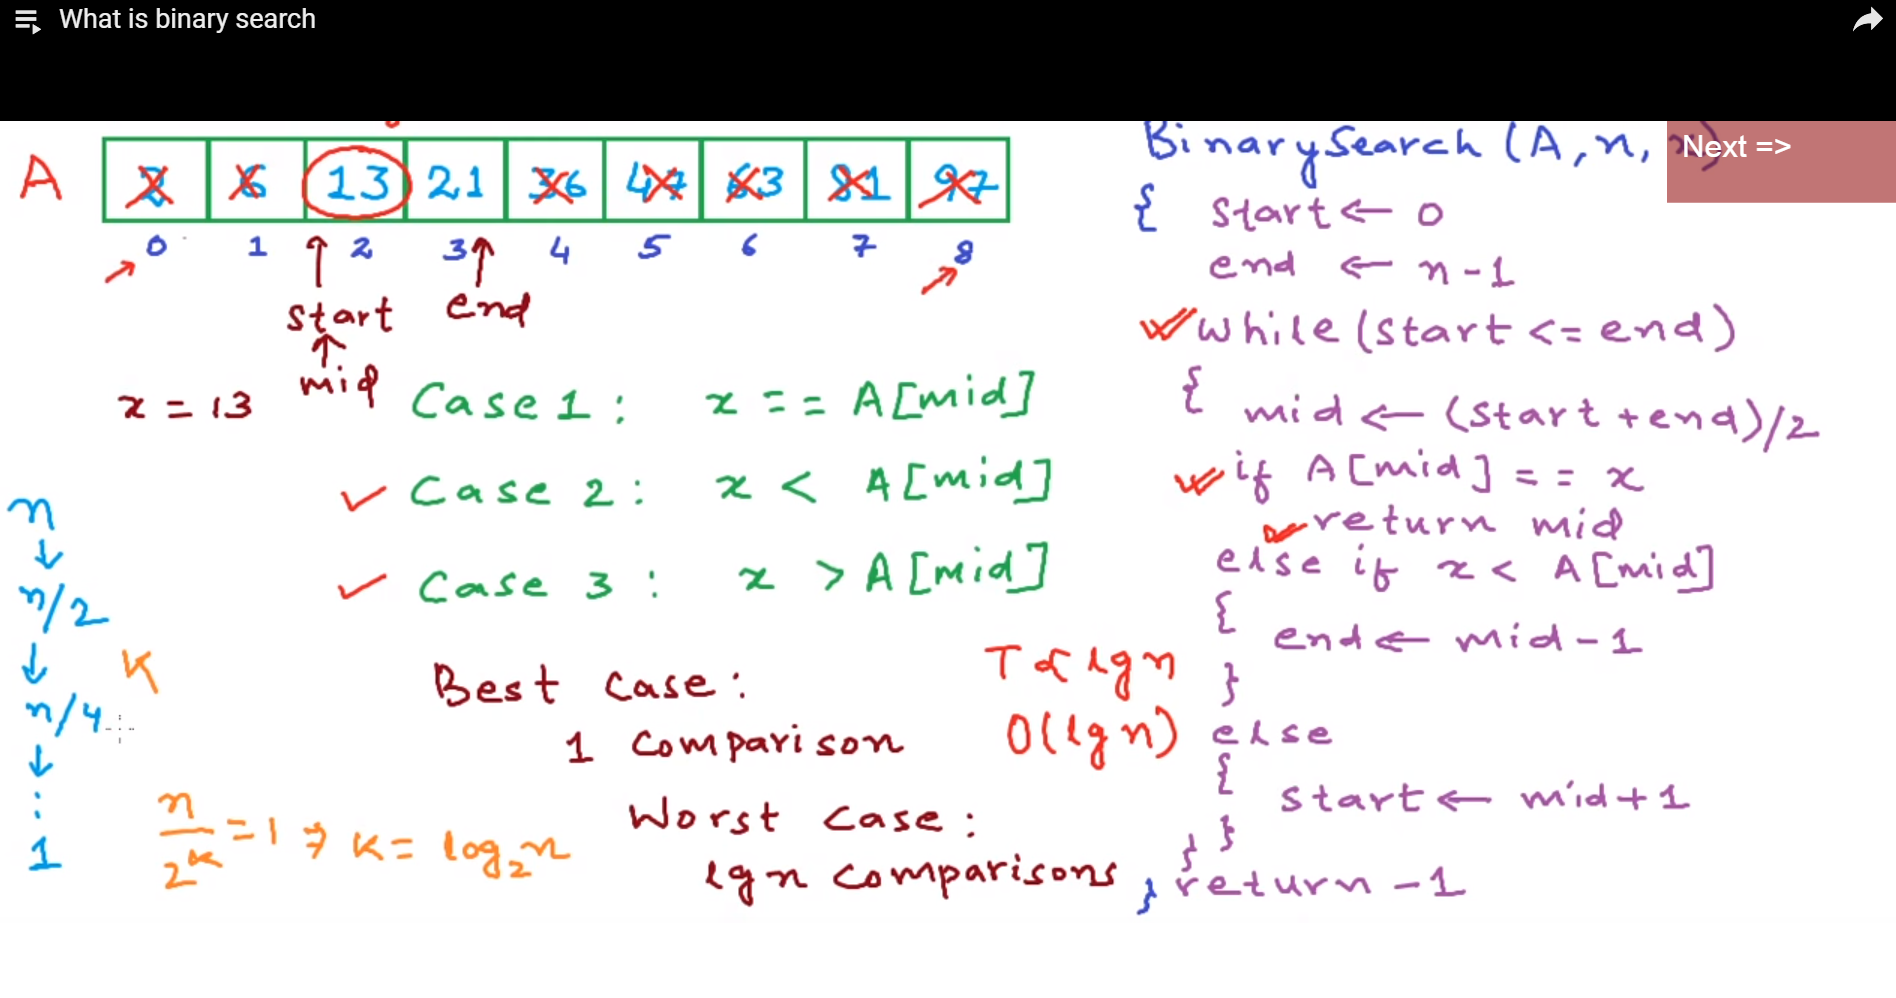 What is binary search
A 2 6 13 21 36 47 63 81 97
0 1 2 3 4 5 6 7 8
start end
mid
x = 13
Case 1 : x == A[mid]
Case 2 : x < A[mid]
Case 3 : x > A[mid]
n
n/2
n/4
:
1
K
n/2^K = 1 ⇒ K = log₂n
Best case :
1 comparison
Worst case :
lgn comparisons
T ∝ lgn
O(lgn)
BinarySearch (A,n,
Next =>
{ start ← 0
end ← n-1
while (start <= end)
{ mid ← (start + end)/2
if A[mid] == x
return mid
else if x < A[mid]
{
end ← mid - 1
}
else
{
start ← mid+1
}
}
} return -1